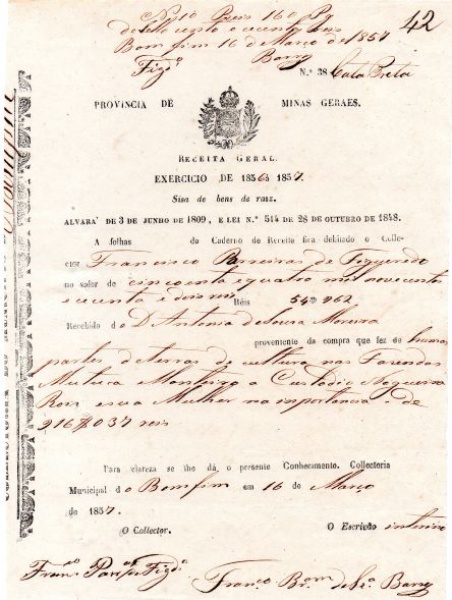 Nº 10 160
Bomfim 16 de Março de 1857
42
Figdº Barry
N.º 38
PROVINCIA DE MINAS GERAES.
RECEITA GERAL.
EXERCICIO DE 1856 a 1857.
Sisa de bens de raiz.
ALVARÁ DE 3 DE JUNHO DE 1809, E LEI N.º 514 DE 28 DE OUTUBRO DE 1848.
A folhas do Caderno de Receita fica debitado o Colle-
ctor Francisco Parreiras de Figueredo
no valor de cincoenta equatro mil novecentos
e secenta e dois reis Réis 54$962
Recebido d o D Antonia de Souza Moreira
proveniente da compra que fez de humas
partes de terras de cultura nas Fazendas
Mutuca Monteiro a Custodio Nogueira
e sua Mulher na importancia de
916$037 reis
Para clareza se lhe dá, o presente Conhecimento. Collectoria
Municipal d o Bomfim em 16 de Março
de 1857.
O Collector. O Escrivão interino
Franco Parras Figdº Franco de Sª Barry